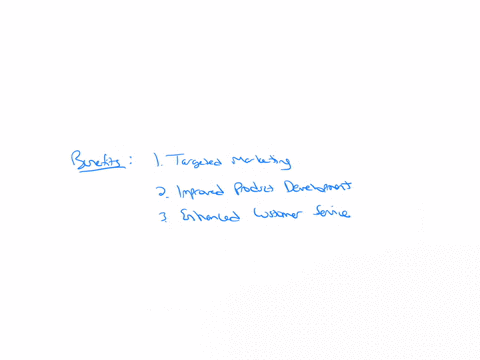 Benefits: 1. Targeted Marketing
2. Improved Product Development
3. Enhanced Customer Service